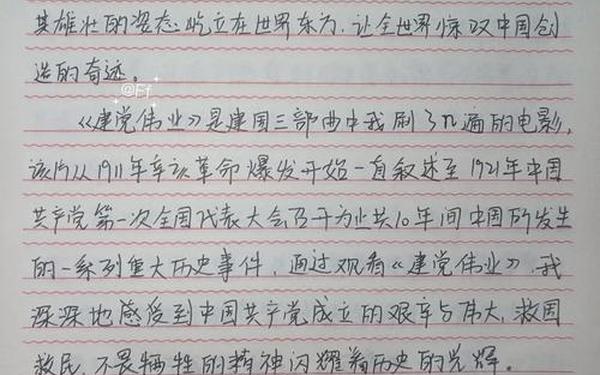 其雄壮的姿态屹立在世界东方,让全世界惊叹中国创
造的奇迹。
@Ff
《建党伟业》是建国三部曲中我刷了n遍的电影,
该片从1911年辛亥革命爆发开始一直叙述至1921年中国
共产党第一次全国代表大会召开为止共10年间中国所发生
的一系列重大历史事件,通过观看《建党伟业》,我
深深地感受到中国共产党成立的艰辛与伟大,救国
救民、不畏牺牲的精神闪耀着历史的光辉。